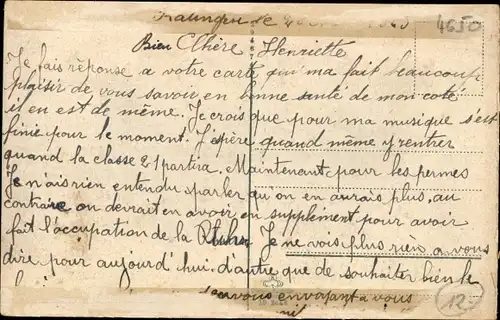 le
4650
Bien Chère Henriette
Je fais réponse a votre carte qui ma fait beaucoup
plaisir de vous savoir en bonne santé de mon coté
il en est de même. Je crois que pour ma musique s'est
finie pour le moment. J'éspère quand même y rentrer
quand la classe 21 partira. Maintenant pour les permes
Je n'ais rien entendu parler qu'on en aurais plus, au
contraire on devrait en avoir en supplément pour avoir
fait l'occupation de la Rhuhr. Je ne vois plus rien a vous
dire pour aujourd'hui. d'autre que de souhaiter bien le
vous envoyant a vous
12